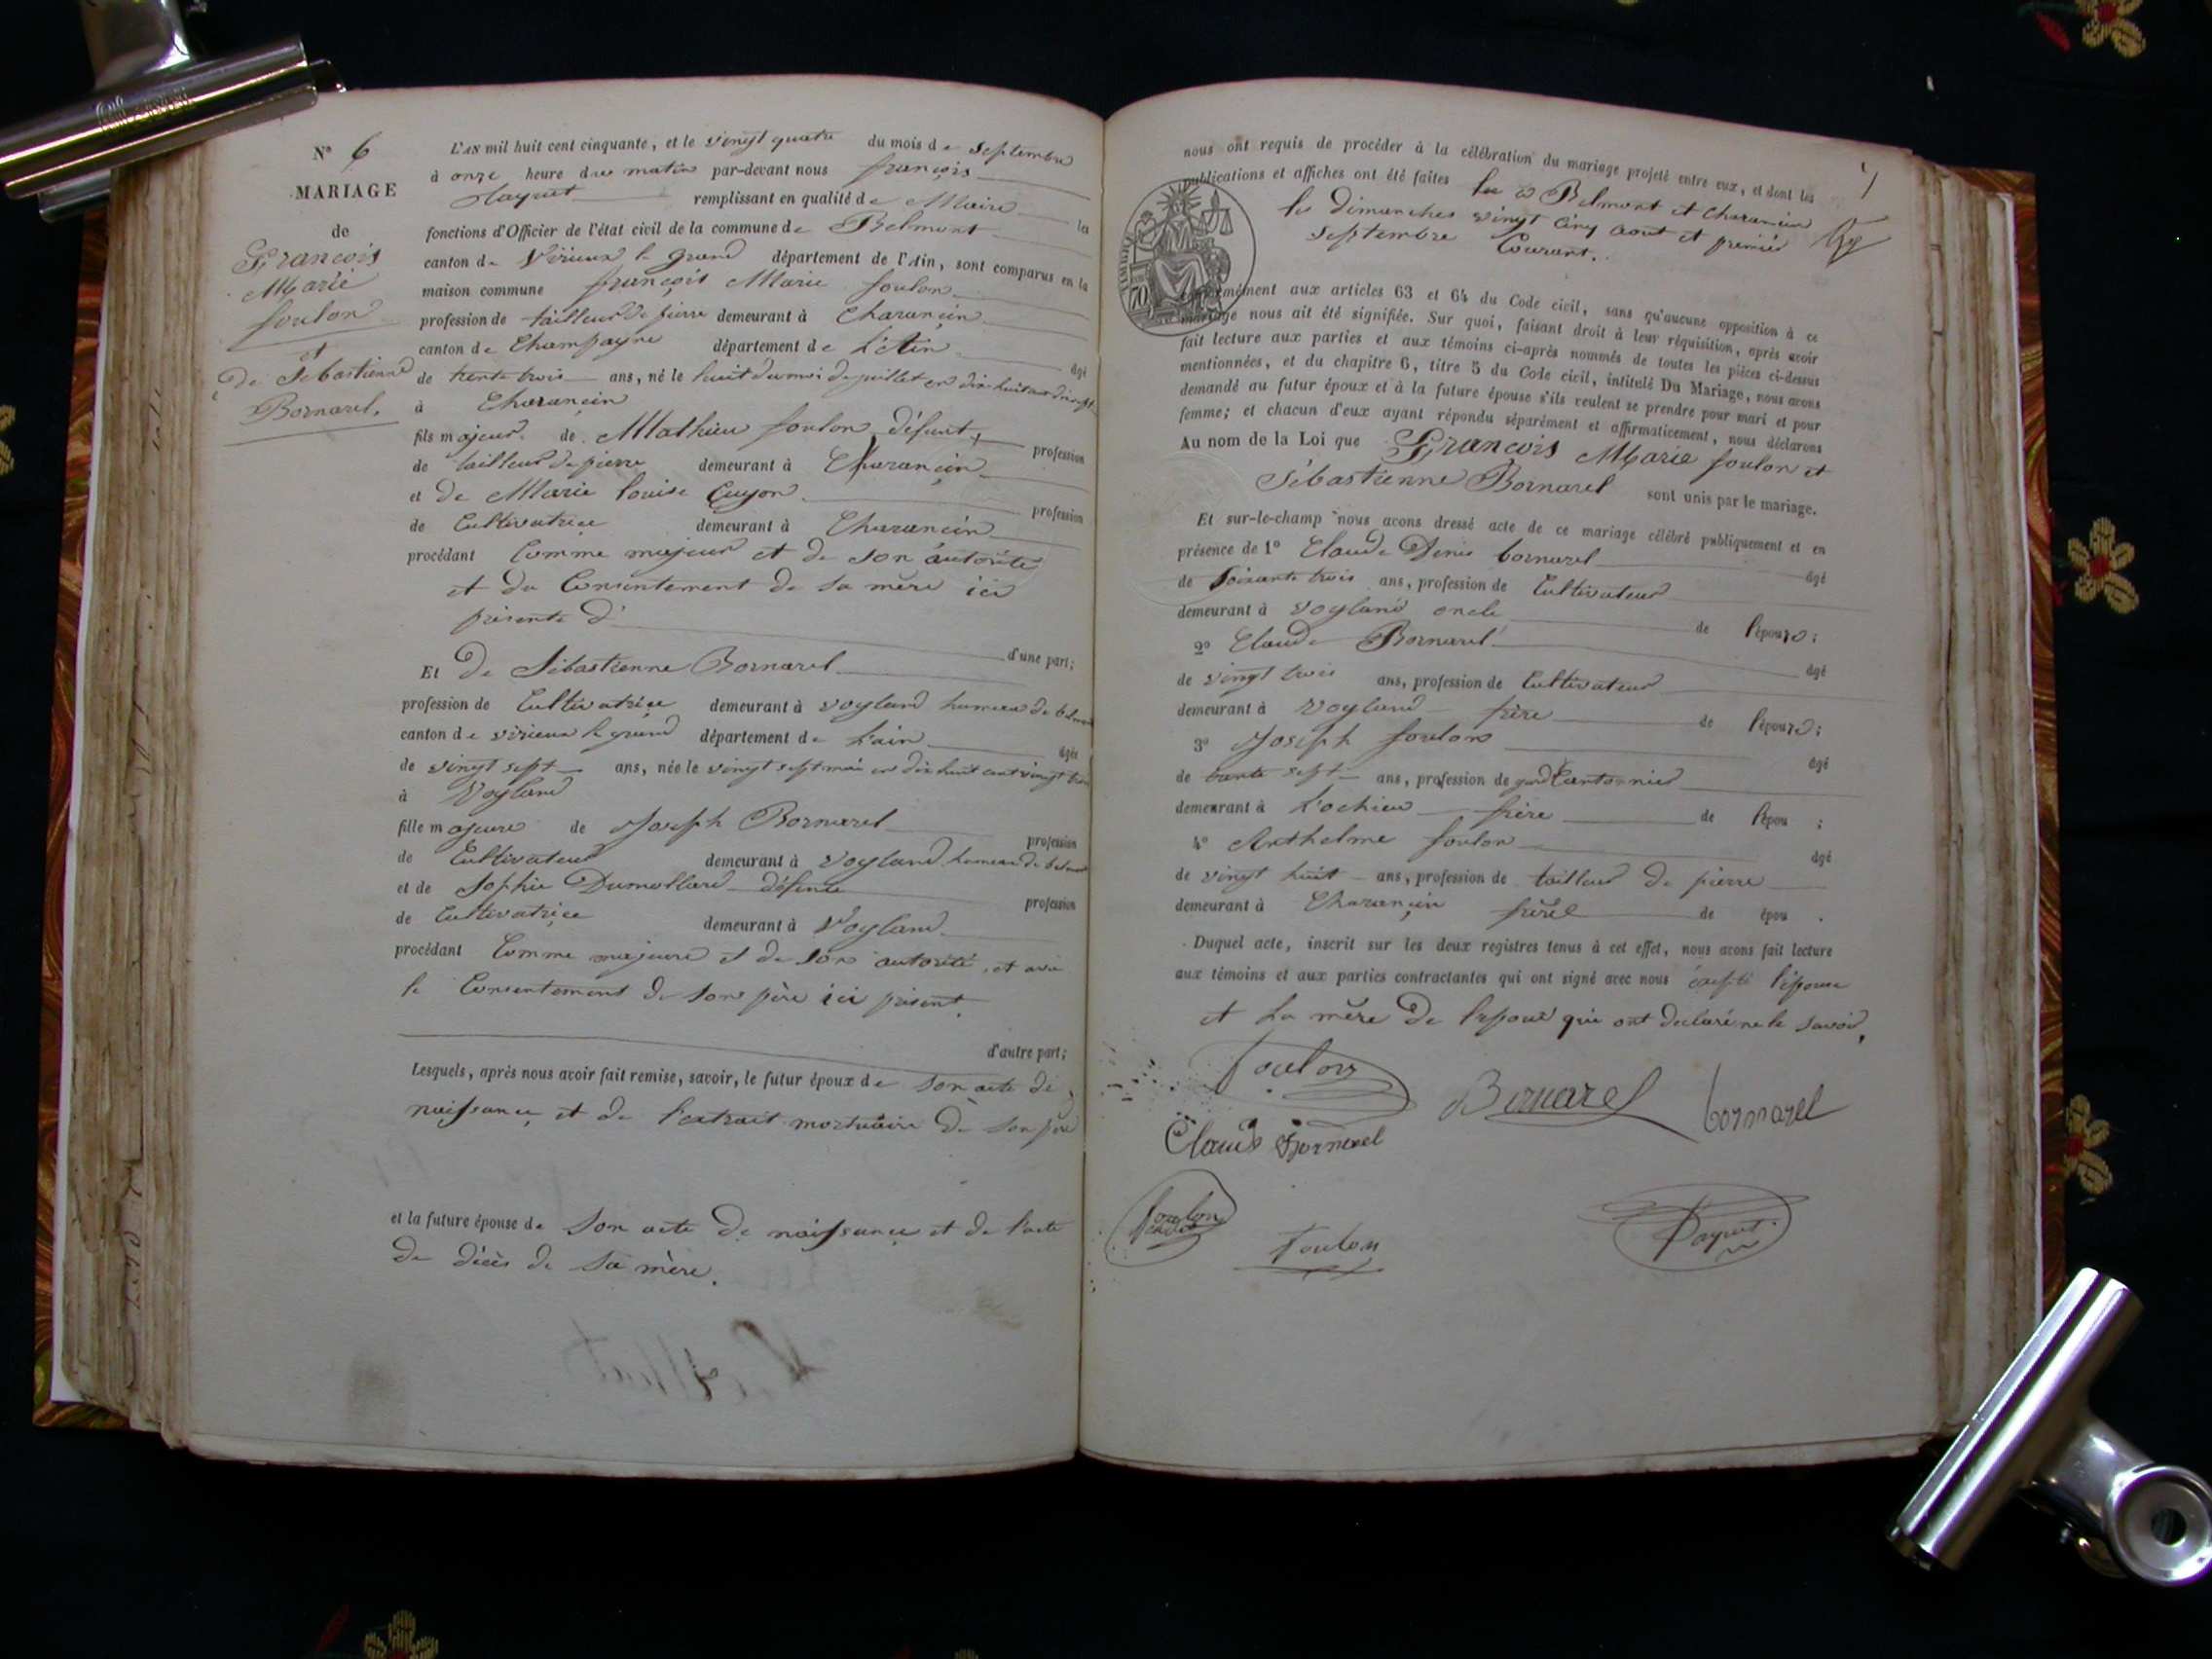 N° 6
MARIAGE
de
François
Marie
foulon
et
de Sébastienne
Bornarel.
L'AN mil huit cent cinquante, et le vingt quatre du mois de septembre
à onze heure du matin par-devant nous françois
Payret remplissant en qualité de Maire les
fonctions d'Officier de l'état civil de la commune de Belmont
canton de Virieux le grand département de l'Ain, sont comparus en la
maison commune françois Marie foulon
profession de tailleur de pierre demeurant à Charancin
canton de Champagne département de L'Ain âgé
de trente trois ans, né le huit du moi de juillet en dix huit cent dix sept
à Charancin
fils majeur de Mathieu foulon défunt, profession
de tailleur de pierre demeurant à Charancin
et de Marie louise Guyon profession
de Cultivatrice demeurant à Charancin
procédant Comme majeur et de son autorité
et du Consentement de sa mère ici
présente d'
d'une part;
Et De Sébastienne Bornarel
profession de Cultivatrice demeurant à vogland hameau de belmont
canton de virieux le grand département de L'ain âgée
de vingt sept ans, née le vingt sept mai en dix huit cent vingt trois
à Vogland
fille majeure de Joseph Bornarel profession
de Cultivateur demeurant à vogland hameau de belmont
et de Sophie Dumollard défunte profession
de Cultivatrice demeurant à Vogland
procédant Comme majeure et de son autorité, et avec
le Consentement de son père ici présent.
d'autre part;
Lesquels, après nous avoir fait remise, savoir, le futur époux de son acte de
naissance et de l'extrait mortuaire de son père
et la future épouse de son acte de naissance et de l'acte
de décès de sa mère.
nous ont requis de procéder à la célébration du mariage projeté entre eux, et dont les
publications et affiches ont été faites à Belmont et Charancin
les dimanches vingt cinq aout et premier
septembre Courant.
TIMBRE
70
conformément aux articles 63 et 64 du Code civil, sans qu'aucune opposition à ce
mariage nous ait été signifiée. Sur quoi, faisant droit à leur réquisition, après avoir
fait lecture aux parties et aux témoins ci-après nommés de toutes les pièces ci-dessus
mentionnées, et du chapitre 6, titre 5 du Code civil, intitulé Du Mariage, nous avons
demandé au futur époux et à la future épouse s'ils veulent se prendre pour mari et pour
femme; et chacun d'eux ayant répondu séparément et affirmativement, nous déclarons
Au nom de la Loi que François Marie foulon et
Sébastienne Bornarel sont unis par le mariage.
Et sur-le-champ nous avons dressé acte de ce mariage célébré publiquement et en
présence de 1° Claude Denis bornarel âgé
de soixante trois ans, profession de Cultivateur
demeurant à vogland oncle de l'épouse;
2° Claude Bornarel âgé
de vingt trois ans, profession de Cultivateur
demeurant à Vogland frère de l'épouse;
3° Joseph foulon âgé
de trente sept ans, profession de Cantonnier
demeurant à Lochieu frère de l'épou ;
4° Anthelme foulon âgé
de vingt huit ans, profession de tailleur de pierre
demeurant à Charancin frère de épou .
Duquel acte, inscrit sur les deux registres tenus à cet effet, nous avons fait lecture
aux témoins et aux parties contractantes qui ont signé avec nous excepté l'épouse
et La mère de l'epoux qui ont declaré ne le savoir.
foulon
Bornarel
bornarel
Claude Bornarel
foulon
foulon
Payret